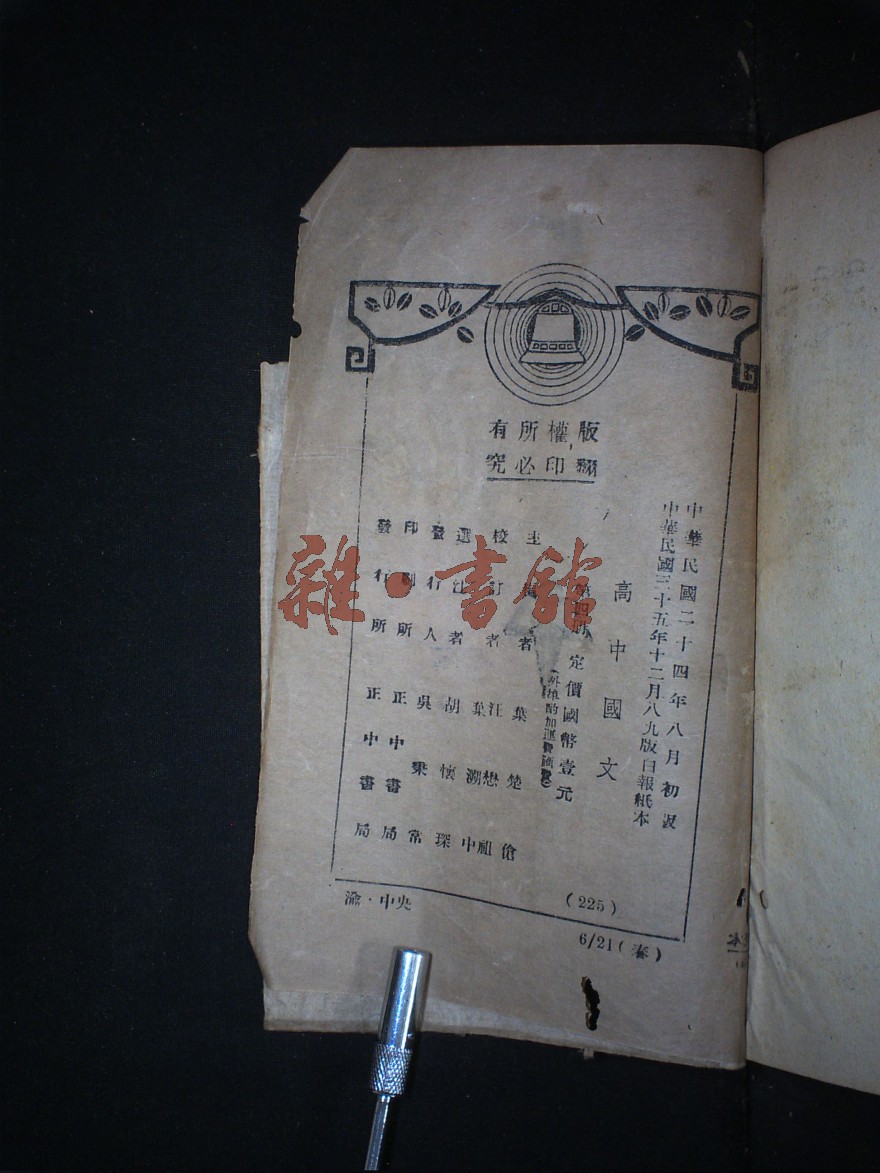 版權所有
翻印必究
中華民國二十四年八月初版
中華民國三十五年十二月八九版白報紙本
高中國文
第四冊 定價國幣壹元
主編者 葉楚傖
校訂者 汪懋祖 葉溯中
選註者 胡懷琛
發行人 吳秉常
印刷所 正中書局
發行所 正中書局
(225)
渝·中央
6/21(春)
雜·書館